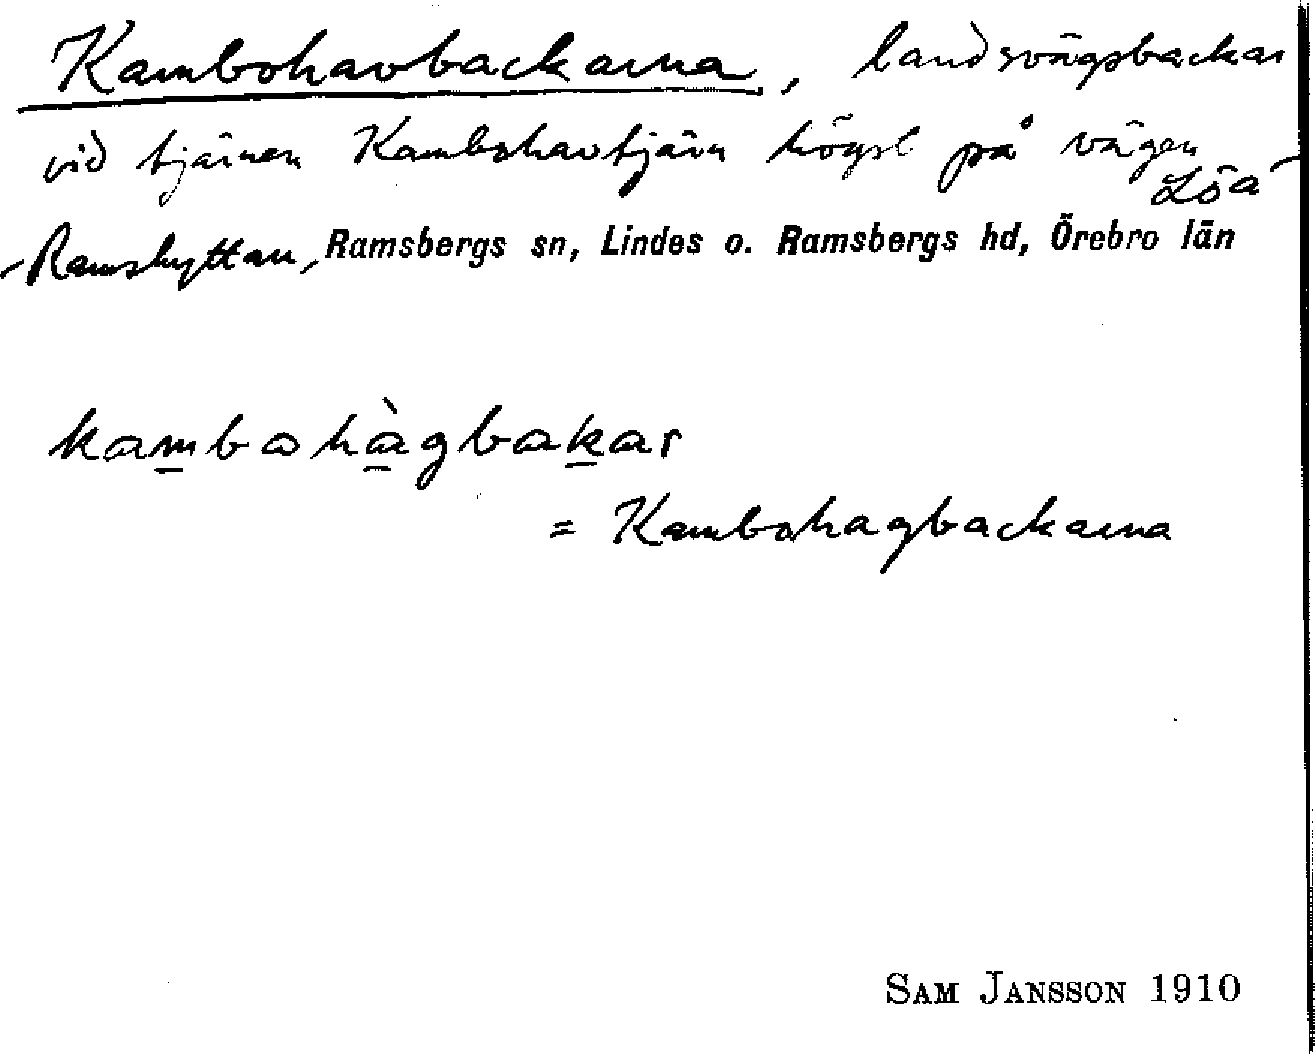 Kambohavbackarna, landsvägsbackar
vid tjärnen Kambohavtjärn högst på vägen
Löa-
-Ramshyttan, Ramsbergs sn, Lindes o. Ramsbergs hd, Örebro län
kambohàgbakar
= Kambohagbackarna
SAM JANSSON 1910